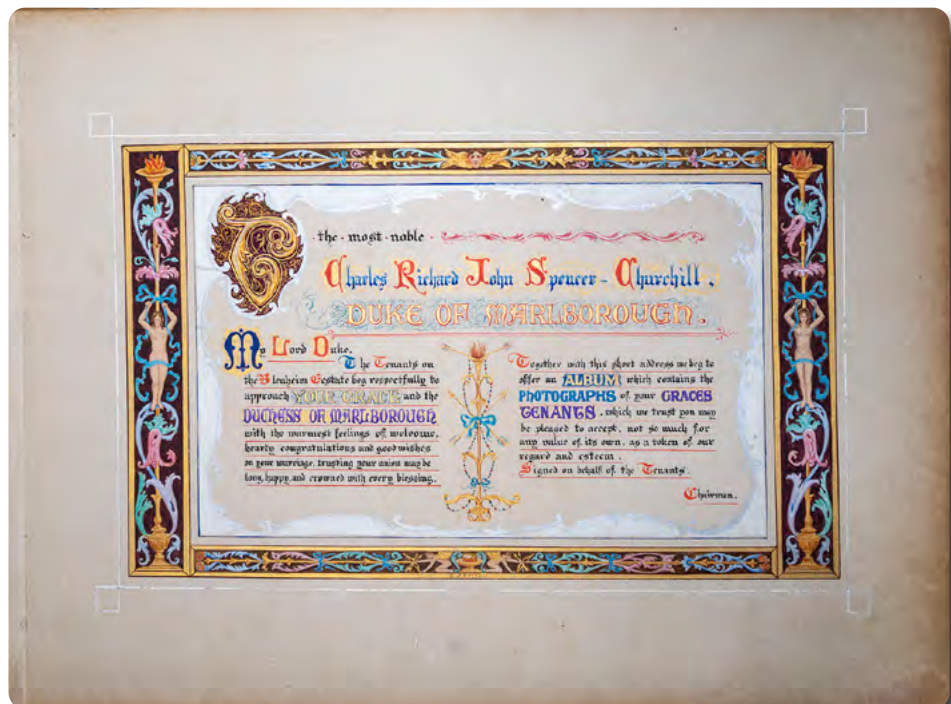 To
· the · most · noble ·
Charles Richard John Spencer - Churchill .
DUKE OF MARLBOROUGH .
My Lord Duke.
The Tenants on
the Blenheim Eestate beg respectfully to
approach YOUR GRACE and the
DUCHESS OF MARLBOROUGH
with the warmest feelings of welcome,
hearty congratulations and good wishes
on your marriage, trusting your union may be
long, happy, and crowned with every blessing.
Together with this short address we beg to
offer an ALBUM which contains the
PHOTOGRAPHS of your GRACES
TENANTS . which we trust you may
be pleased to accept, not so much for
any value of its own, as a token of our
regard and esteem .
Signed on behalf of the Tenants.
Chairman.